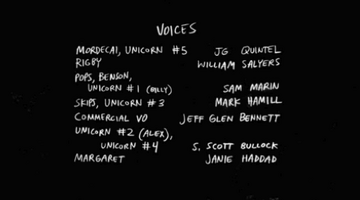 VOICES
MORDECAI, UNICORN #5 JG QUINTEL
RIGBY WILLIAM SALYERS
POPS, BENSON,
UNICORN #1 (BILLY) SAM MARIN
SKIPS, UNICORN #3 MARK HAMILL
COMMERCIAL VO JEFF GLEN BENNETT
UNICORN #2 (ALEX),
UNICORN #4 S. SCOTT BULLOCK
MARGARET JANIE HADDAD